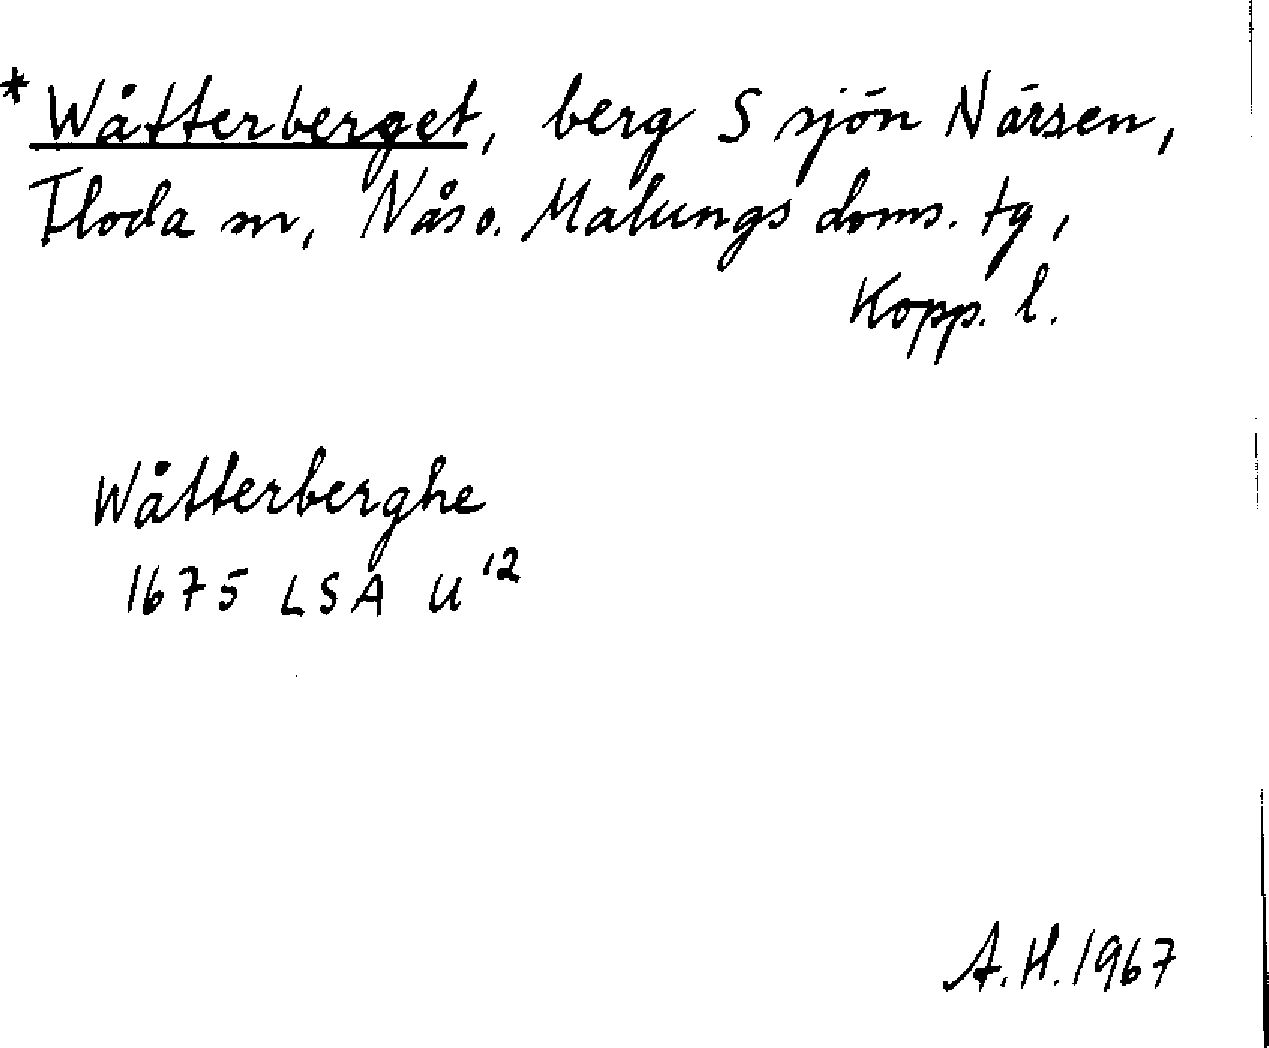 *Wåtterberget, berg S sjön Närsen,
Floda sn, Nås o. Malungs doms. tg,
Kopp. l.
Wåtterberghe
1675 LSA U¹²
A.H. 1967